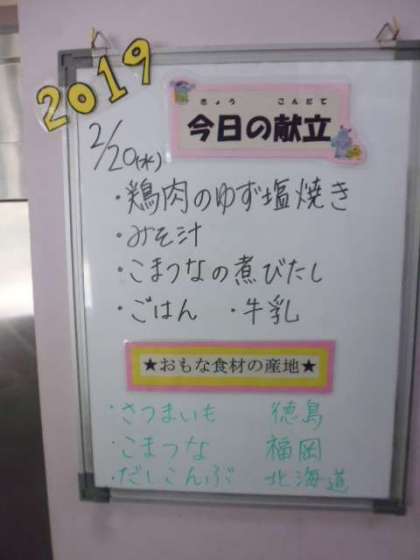 2019
きょう こんだて
今日の献立
2/20(水)
・鶏肉のゆず塩焼き
・みそ汁
・こまつなの煮びたし
・ごはん ・牛乳
★おもな食材の産地★
・さつまいも 徳島
・こまつな 福岡
・だしこんぶ 北海道